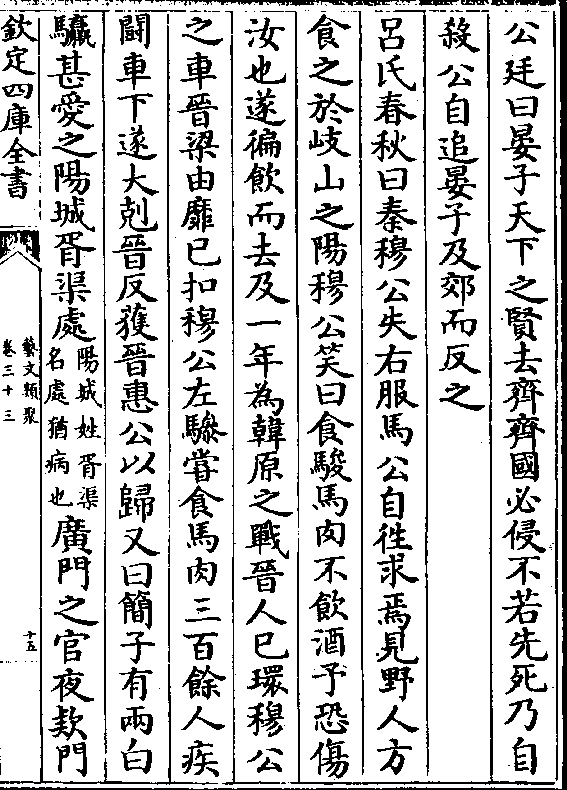 公廷曰晏子天下之賢去齊齊國必侵不若先死乃自
殺公自追晏子及郊而反之
呂氏春秋曰秦穆公失右服馬公自徃求焉見野人方
食之於岐山之陽穆公笑曰食駿馬肉不飲酒予恐傷
汝也遂徧飲而去及一年為韓原之戰晉人已環穆公
之車晉梁由靡已扣穆公左驂嘗食馬肉三百餘人疾
鬭車下遂大剋晉反獲晉惠公以歸又曰簡子有兩白
驘甚愛之陽城胥渠處陽城姓胥渠名處猶病也廣門之官夜欵門
欽定四庫全書
藝文類聚
卷三十三
十五